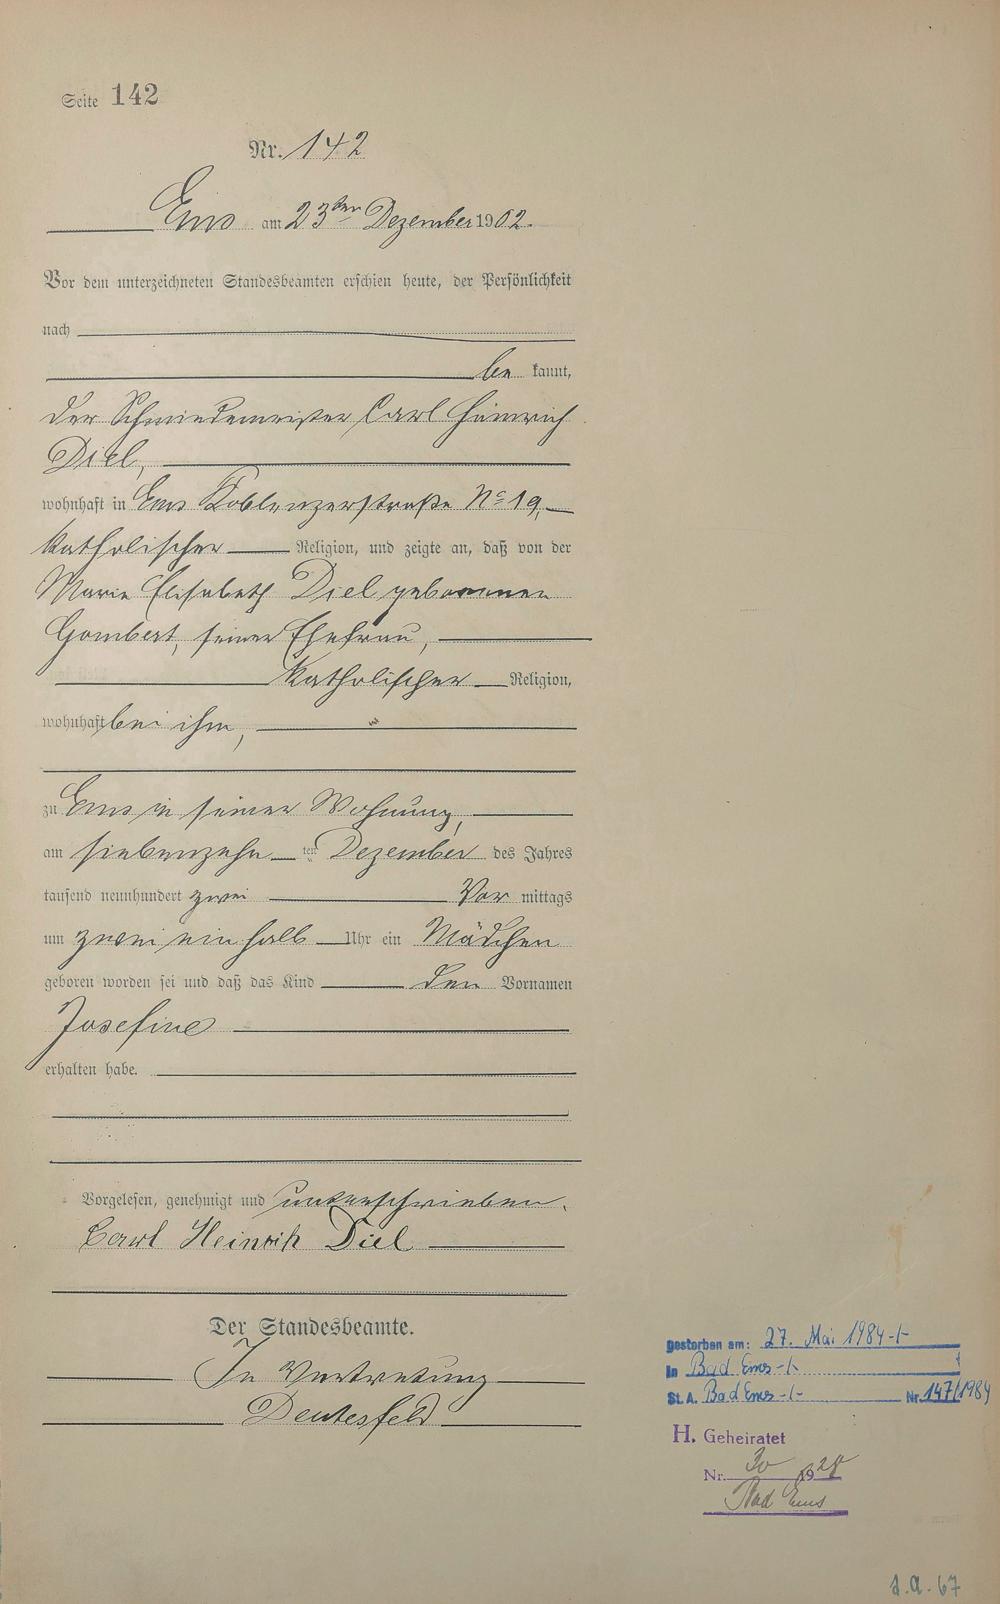 Seite 142
Nr. 142
Ems am 23ten Dezember 1902.
Vor dem unterzeichneten Standesbeamten erschien heute, der Persönlichkeit
nach
be kannt,
der Schmiedemeister Carl Heinrich
Diel,
wohnhaft in Ems Koblenzerstraße No 19,
katholischer Religion, und zeigte an, daß von der
Marie Elisabeth Diel geborenen
Gombert, seiner Ehefrau,
katholischer Religion,
wohnhaft bei ihm,
zu Ems in seiner Wohnung,
am siebenzehn ten Dezember des Jahres
tausend neunhundert zwei Vor mittags
um zwei ein halb Uhr ein Mädchen
geboren worden sei und daß das Kind den Vornamen
Josefine
erhalten habe.
Vorgelesen, genehmigt und unterschrieben.
Carl Heinrich Diel
Der Standesbeamte.
In Vertretung
Deutesfeld
gestorben am: 27. Mai 1984-/-
In Bad Ems -/-
St. A. Bad Ems -/- Nr. 147/1984
H. Geheiratet
Nr. 30 1928
Bad Ems